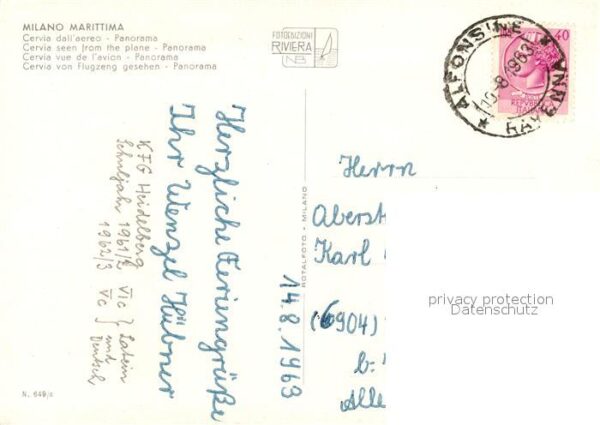 MILANO MARITTIMA
Cervia dall'aereo - Panorama
Cervia seen from the plane - Panorama
Cervia vue de l'avion - Panorama
Cervia von Flugzeug gesehen - Panorama
FOTOEDIZIONI
RIVIERA
NB
ALFONSINE
RAVENNA
8.1963
40
Herzliche Feriengrüße
Ihr Wenzel Hübner
14.8.1963
KFG Heidelberg
Schuljahr 1961/2 VIc } Latein
1962/3 Vc } und
Deutsch
ROTALFOTO - MILANO
Herrn
Aberst
Karl
(6904)
b.
Alle
privacy protection
Datenschutz
N. 649/c